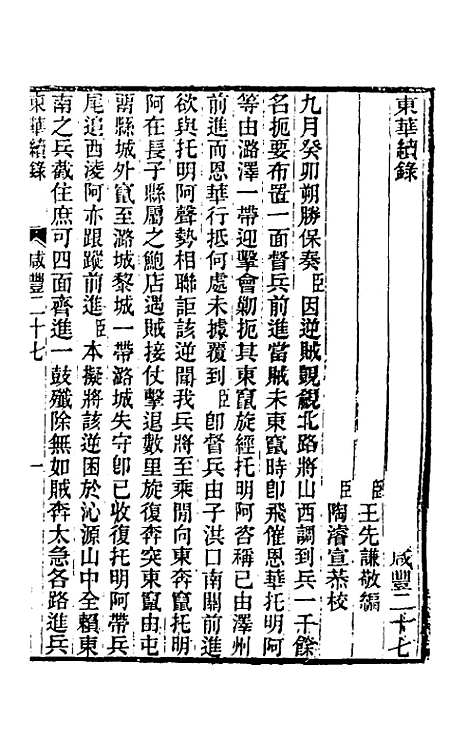 東華續錄
咸豐二十七
臣王先謙敬編
臣陶濬宣恭校
九月癸卯朔勝保奏臣因逆賊覬覦北路將山西調到兵一千餘
名扼要布置一面督兵前進當賊未東竄時卽飛催恩華托明阿
等由潞澤一帶迎擊會勦扼其東竄旋經托明阿咨稱已由澤州
前進而恩華行抵何處未據覆到臣卽督兵由子洪口南關前進
欲與托明阿聲勢相聯詎該逆聞我兵將至乘閒向東奔竄托明
阿在長子縣屬之鮑店遇賊接仗擊退數里旋復奔突東竄由屯
留縣城外竄至潞城黎城一帶潞城失守卽已收復托明阿帶兵
尾追西淩阿亦跟蹤前進臣本擬將該逆困於沁源山中全賴東
南之兵截住庶可四面齊進一鼓殲除無如賊奔太急各路進兵
東華續錄 咸豐二十七 一